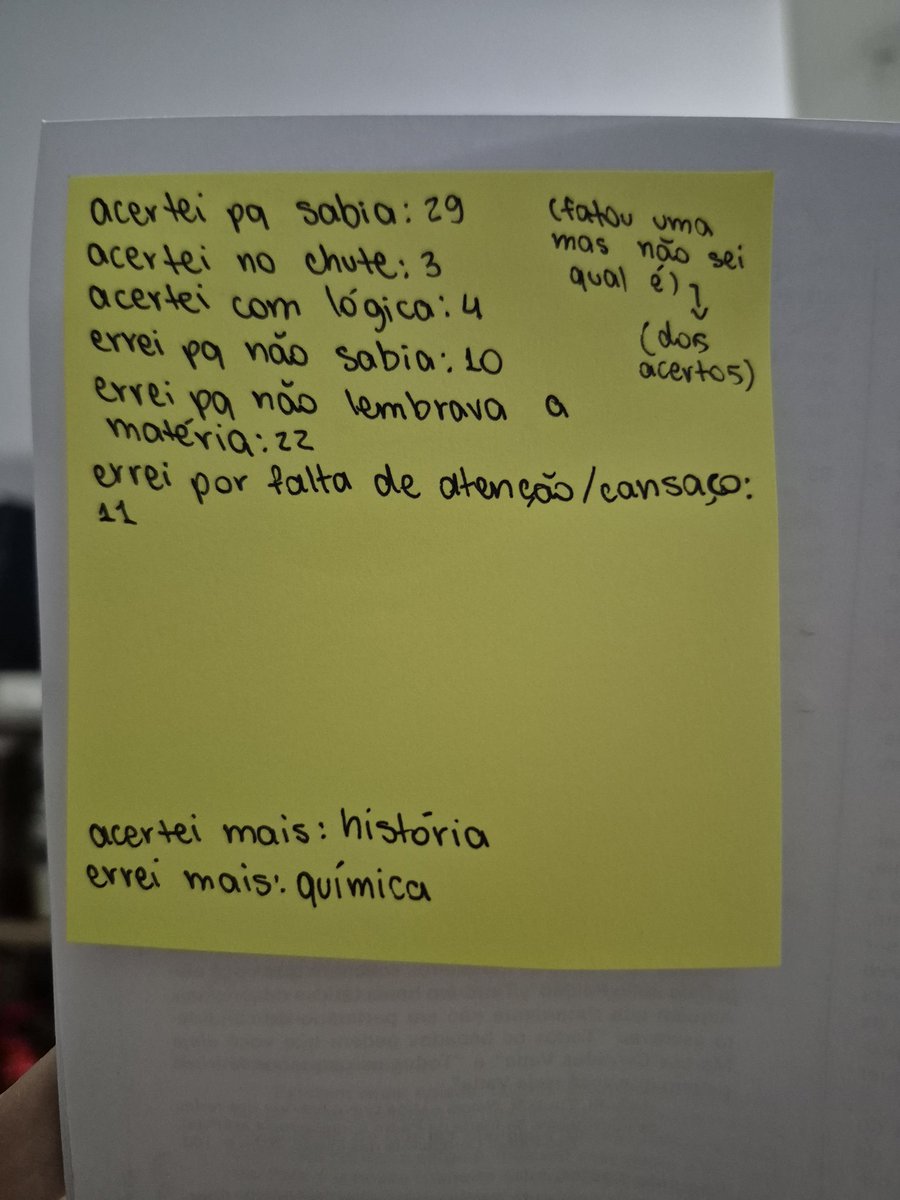 acertei pq sabia: 29
acertei no chute: 3
acertei com lógica: 4
errei pq não sabia: 10
errei pq não lembrava a
matéria: 22
errei por falta de atenção/cansaço:
11
(fatou uma
mas não sei
qual é)
(dos
acertos)
acertei mais: história
errei mais: química